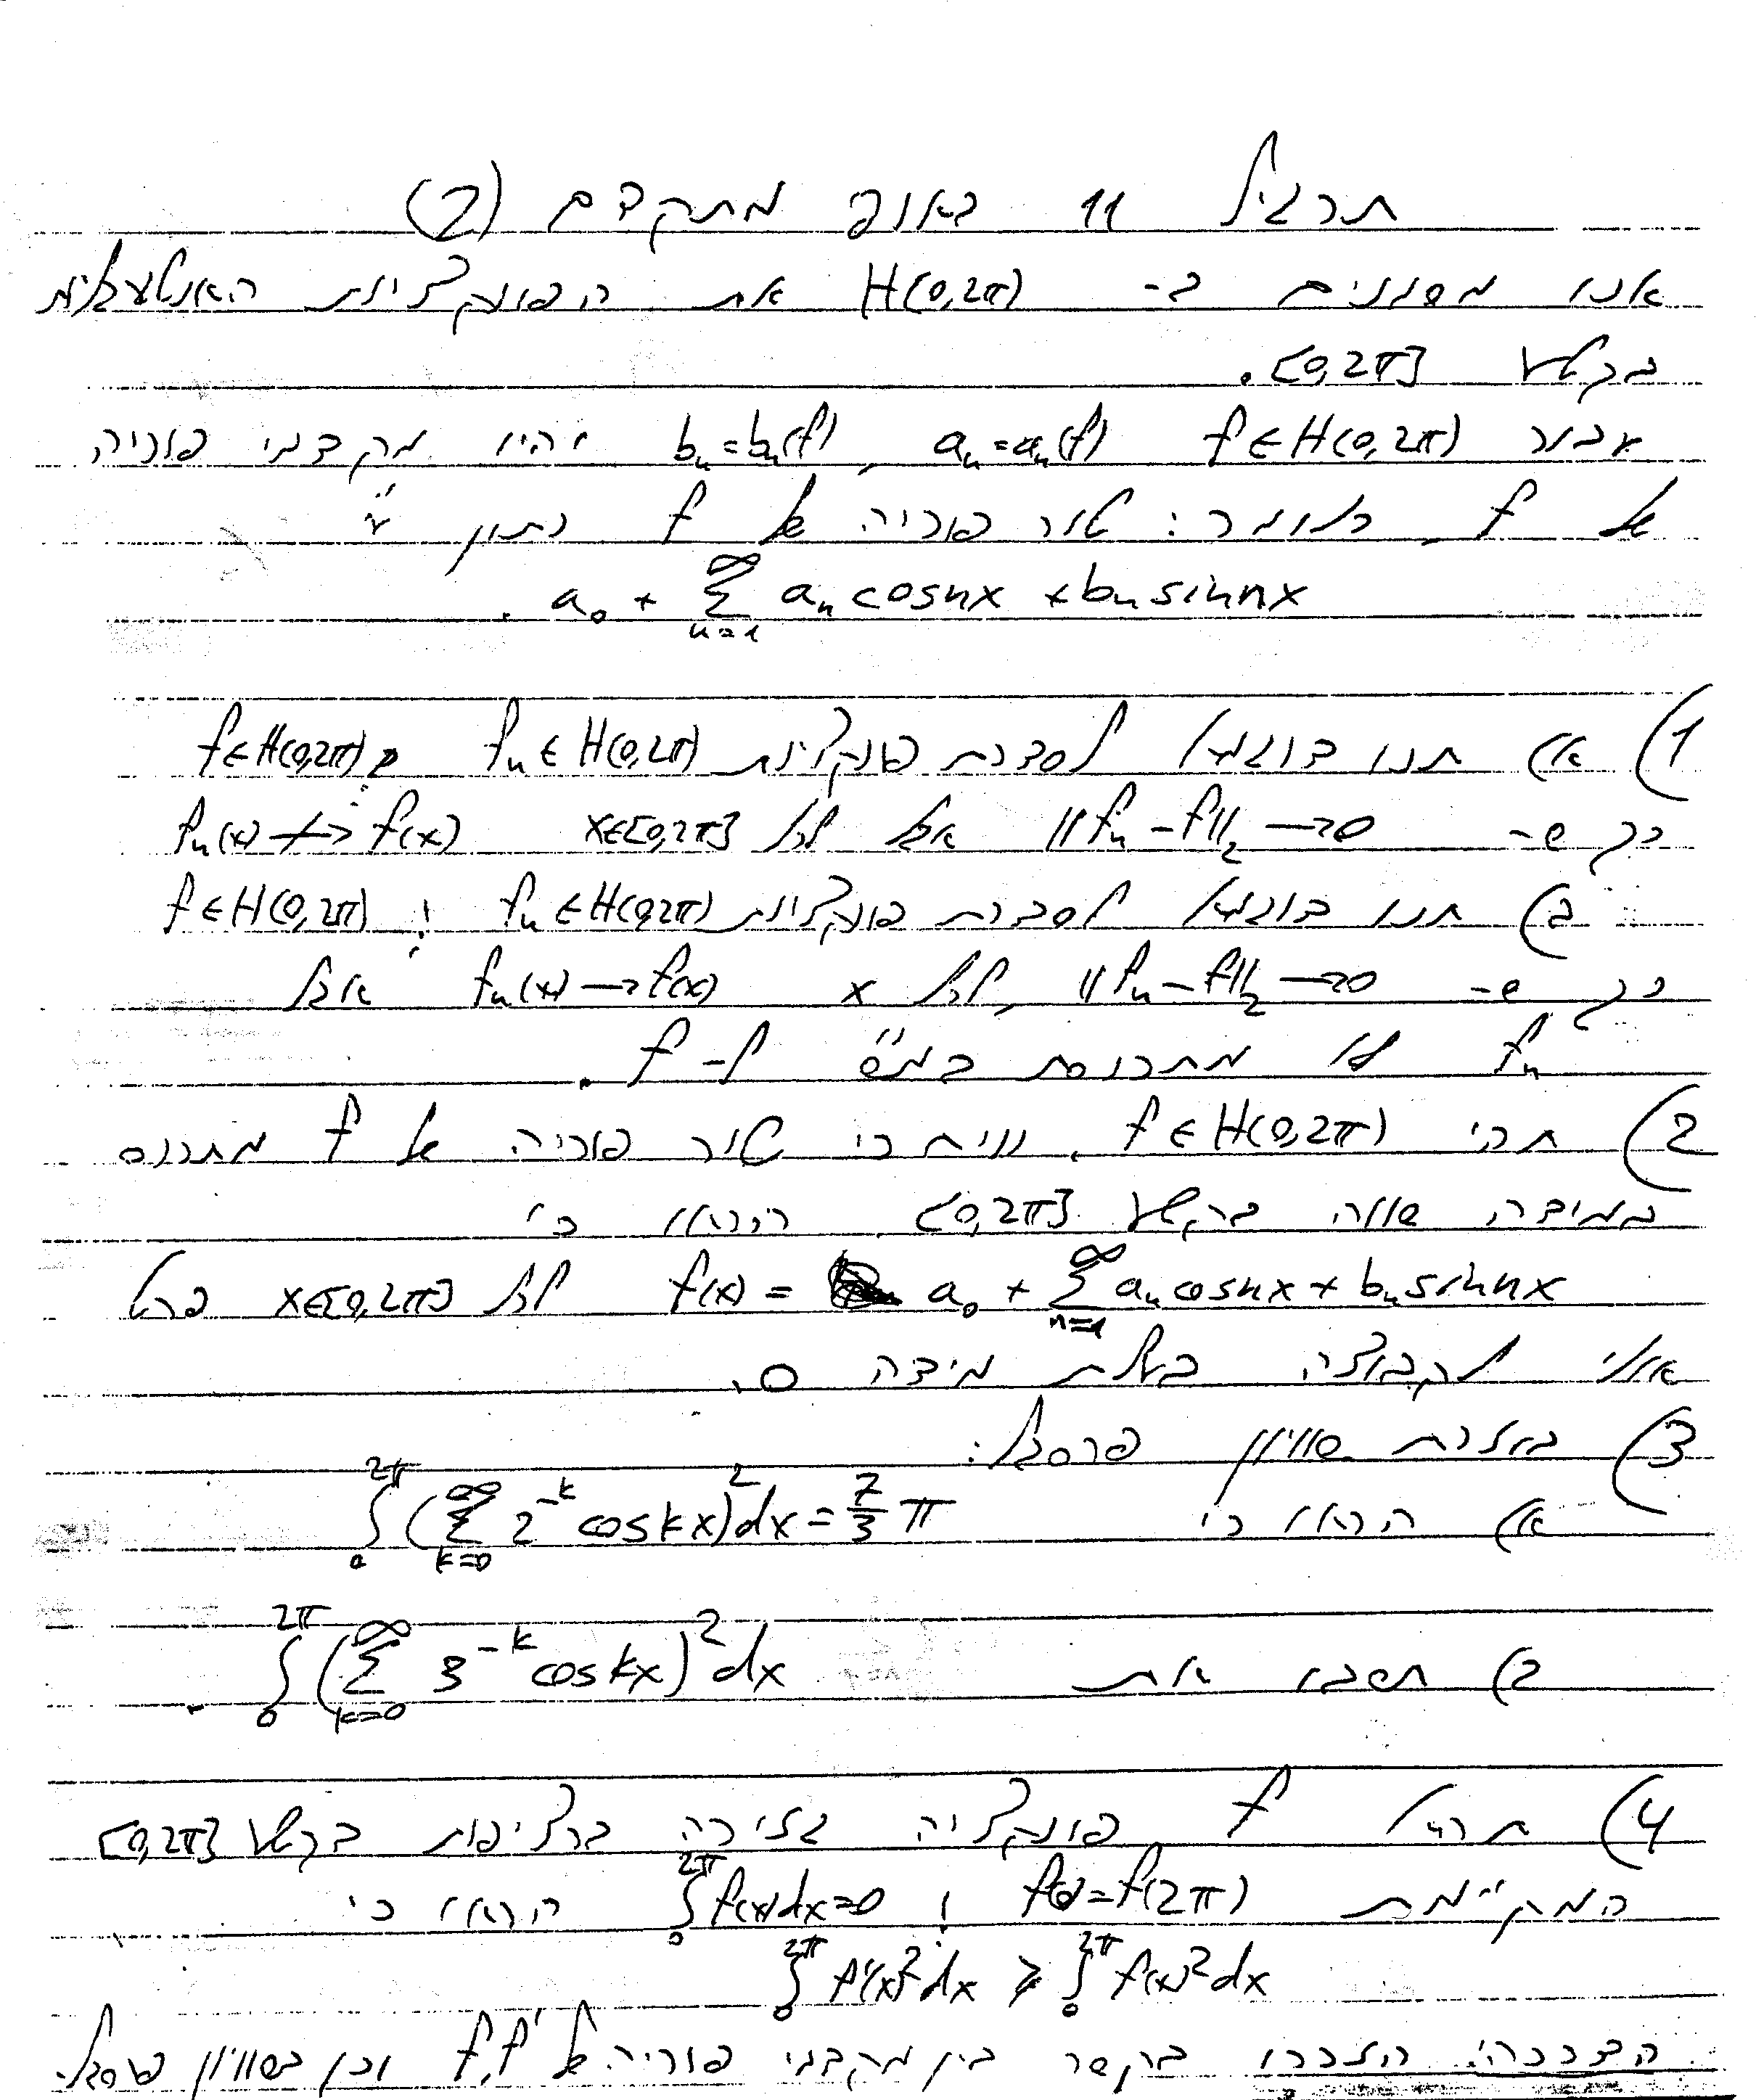 תרגיל 11 באינפ מתקדם (2)
אנו מסמנים ב- H(0,2π) את הפונקציות האינטגרביליות
בקטע [0,2π].
עבור f∈H(0,2π) aₙ=aₙ(f), bₙ=bₙ(f) יהיו מקדמי פוריה
של f, כלומר: טור פוריה של f נתון ע"י
a₀ + ∑_{n=1}^{∞} aₙ cosnx + bₙ sinnx .
1) א) תנו דוגמא לסדרת פונקציות fₙ∈H(0,2π) ו f∈H(0,2π)
כך ש- ‖fₙ-f‖₂→0 אבל לכל x∈[0,2π] fₙ(x)↛f(x)
ב) תנו דוגמא לסדרת פונקציות fₙ∈H(0,2π) ו f∈H(0,2π)
כך ש- ‖fₙ-f‖₂→0, לכל x fₙ(x)→f(x) אבל
fₙ לא מתכנסת במ"ש ל- f.
2) תהי f∈H(0,2π), נניח כי טור פוריה של f מתכנס
במידה שווה בקטע [0,2π]. הראו כי
f(x) = a₀ + ∑_{n=1}^{∞} aₙcosnx + bₙsinnx לכל x∈[0,2π] פרט
אולי לקבוצה בעלת מידה 0.
3) בעזרת שוויון פרסבל:
א) הראו כי ∫₀^{2π} (∑_{k=0}^{∞} 2^{-k} cos kx)² dx = 7/3 π
ב) חשבו את ∫₀^{2π} (∑_{k=0}^{∞} 3^{-k} cos kx)² dx .
4) תהי f פונקציה גזירה ברציפות בקטע [0,2π]
המקיימת f(0)=f(2π) ו ∫₀^{2π} f(x)dx=0 הראו כי
∫₀^{2π} f'(x)²dx ≥ ∫₀^{2π} f(x)²dx
הדרכה: הזכרו בקשר בין מקדמי פוריה של f,f' וכן בשוויון פרסבל.